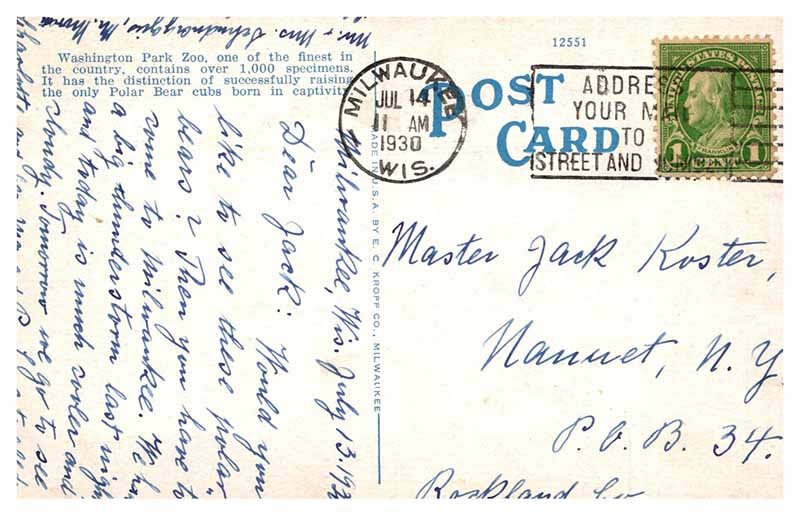 Washington Park Zoo, one of the finest in
the country, contains over 1,000 specimens.
It has the distinction of successfully raising
the only Polar Bear cubs born in captivity
12551
POST
CARD
MILWAUKEE
JUL 14
11 AM
1930
WIS.
ADDRE
YOUR M
TO
STREET AND
UNITED STATES POSTAGE
FRANKLIN
1 CENT 1
MADE IN U.S.A. BY E. C. KROPP CO., MILWAUKEE
Milwaukee, Wis. July 13, 19
Dear Jack: Would you
like to see these polar
bears? Then you have to
come to Milwaukee. We ha
a big thunderstorm last nigh
and today is much cooler and
cloudy. Tomorrow we go to see
Mr. + Mrs.
Master Jack Koster,
Nanuet, N. Y.
P. O. B. 34.
Rockland Co